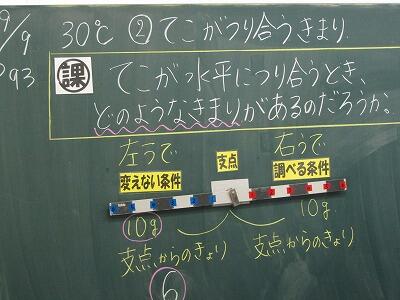 9/9
30℃ ②てこがつり合うきまり
P93
課 てこが水平につり合うとき、
どのようなきまりがあるのだろうか。
左うで 支点 右うで
変えない条件 調べる条件
10g 10g
支点からのきょり 支点からのきょり
6